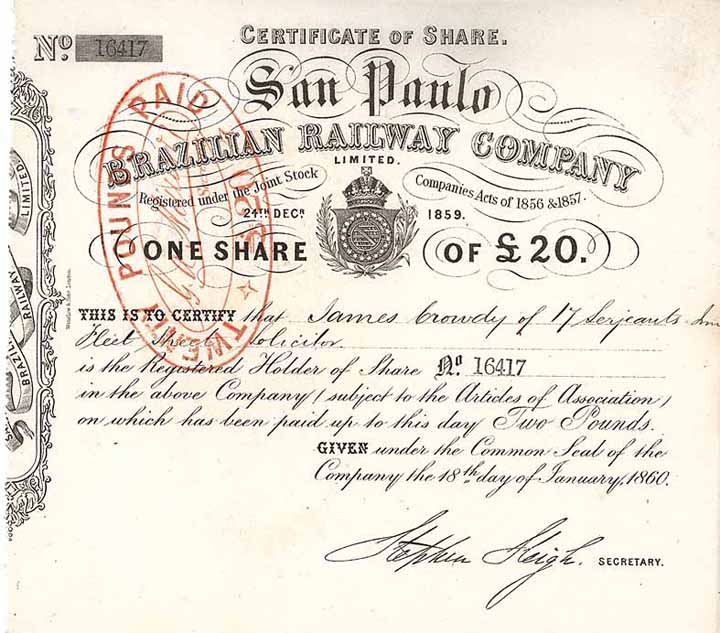 No. 16417
CERTIFICATE OF SHARE.
San Paulo
BRAZILIAN RAILWAY COMPANY
LIMITED.
Registered under the Joint Stock Companies Acts of 1856 & 1857.
24TH DECR 1859.
ONE SHARE OF £20.
THIS IS TO CERTIFY that James Crowdy of 17 Serjeants Inn
Fleet Street Solicitor
is the Registered Holder of Share No 16417
in the above Company (subject to the Articles of Association)
on which has been paid up to this day Two Pounds.
GIVEN under the Common Seal of the
Company the 18th day of January, 1860.
Stephen Leigh. SECRETARY.
TWENTY POUNDS PAID
LIMITED.
RAILWAY
BRAZIL
London.